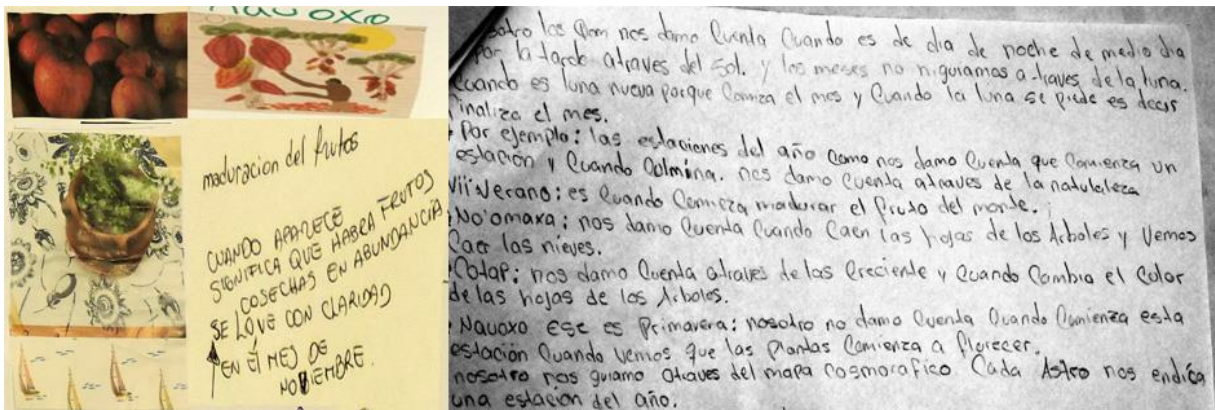 Nauoxo
maduracion del frutos
CUANDO APARECE
SIGNIFICA QUE HABRA FRUTOS
COSECHAS EN ABUNDANCIA
SE LO VE CON CLARIDAD
EN EL MES DE
NOVIEMBRE.
los Qom nos damo Cuenta Cuando es de dia de noche de medio dia
Por la tarde atraves del Sol. y los meses no niguiamos a traves de la luna.
Cuando es luna nueva porque Comiza el mes y Cuando la luna se piede es decir
Finaliza el mes.
Por ejemplo: las estaciones del año como nos damo Cuenta que Comienza un
estación y Cuando Culmina. nos damo Cuenta atraves de la natulaleza
Vii: Verano: es Cuando Comieza madurar el fruto del monte.
No'omaxa: nos damo Cuenta Cuando Caen las hojas de los Arboles y Vemos
Caer las nieves.
Cotap: nos damo Cuenta atraves de las Creciente y Cuando Cambia el Color
de las hojas de los Arboles.
Nauoxo ese es Primavera: nosotro no damo Cuenta Cuando Comienza esta
estación Cuando vemos que las Plantas Comienza a florecer.
nosotro nos guiamo atraves del mapa Cosmografico Cada Astro nos endica
una estación del año.